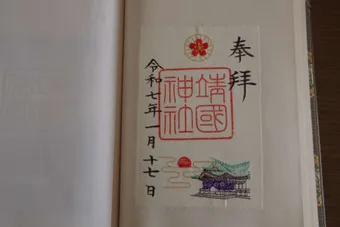 奉拝
靖國神社
令和七年一月十七日